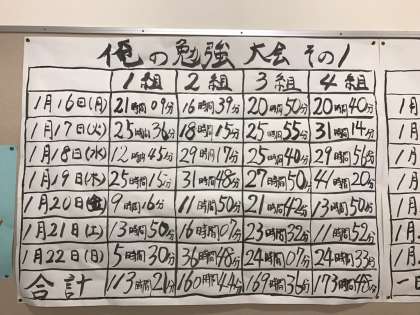 俺の勉強大会 その1
1組 2組 3組 4組
1月16日(月) 21時間09分 16時間39分 20時間50分 20時間40分
1月17日(火) 25時間36分 18時間15分 25時間55分 31時間14分
1月18日(水) 12時間45分 29時間17分 25時間40分 29時間56分
1月19日(木) 25時間15分 31時間48分 27時間50分 44時間20分
1月20日(金) 9時間16分 11時間50分 21時間42分 13時間50分
1月21日(土) 13時間50分 16時間07分 23時間32分 11時間52分
1月22日(日) 5時間30分 36時間48分 24時間07分 24時間33分
合計 113時間21分 160時間44分 169時間36分 173時間48分